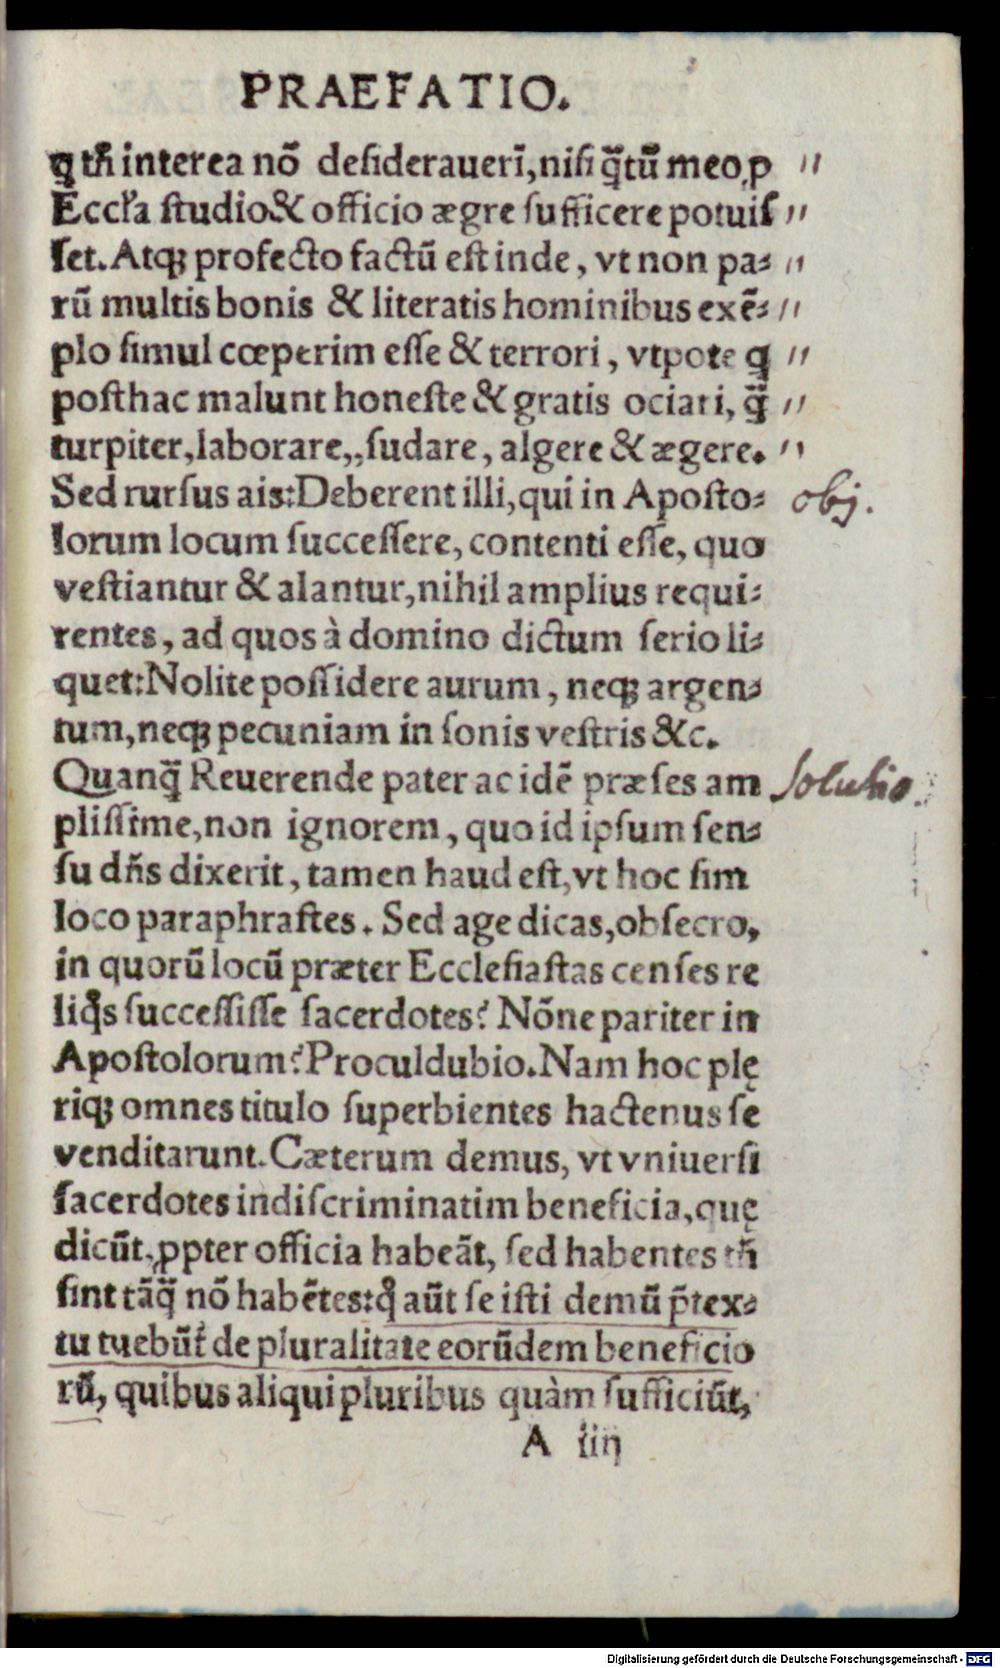 PRAEFATIO.
ꝗ tn̄ interea nō deſiderauerī, niſi q̄tū meo ꝓ "
Eccl̄a ſtudio & officio ægre ſufficere potuiſ "
ſet. Atq; profecto factū eſt inde, vt non pa- "
rū multis bonis & literatis hominibus exē- "
plo ſimul cœperim eſſe & terrori, vtpote ꝗ "
poſthac malunt honeſte & gratis ociari, q̄ "
turpiter, laborare,, ſudare, algere & ægere. "
Sed rurſus ais: Deberent illi, qui in Apoſto- obij.
lorum locum ſucceſſere, contenti eſſe, quo
veſtiantur & alantur, nihil amplius requi-
rentes, ad quos à domino dictum ſerio li-
quet: Nolite poſſidere aurum, neq; argen-
tum, neq; pecuniam in ſonis veſtris &c.
Quanq̄ Reuerende pater ac idē præſes am ſolutio.
pliſſime, non ignorem, quo id ipſum ſen-
ſu dn̄s dixerit, tamen haud eſt, vt hoc ſim
loco paraphraſtes. Sed age dicas, obſecro,
in quorū locū præter Eccleſiaſtas cenſes re
liqͦs ſucceſſiſſe ſacerdotes? Nōne pariter in
Apoſtolorum? Proculdubio. Nam hoc plę
riq; omnes titulo ſuperbientes hactenus ſe
venditarunt. Cæterum demus, vt vniuerſi
ſacerdotes indiſcriminatim beneficia, quę
dicūt, ꝓpter officia habeāt, ſed habentes tn̄
ſint tāq̄ nō habētes: qͦ aūt ſe iſti demū p̄tex-
tu tuebūt᷑ de pluralitate eorūdem beneficio
rū, quibus aliqui pluribus quàm ſufficiūt,
A iiij
Digitalisierung gefördert durch die Deutsche Forschungsgemeinschaft - DFG